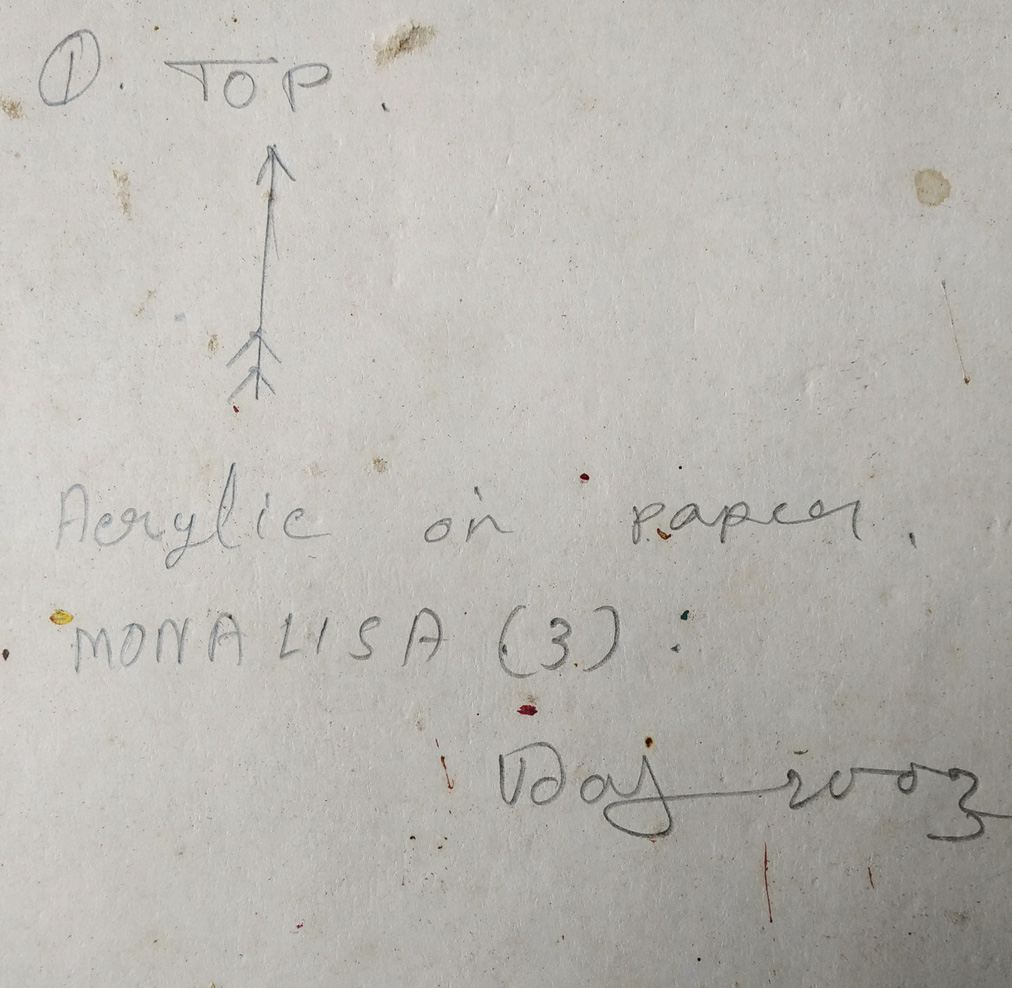 ①. TOP.
Acrylic on paper.
MONALISA (3):
Uday 2003